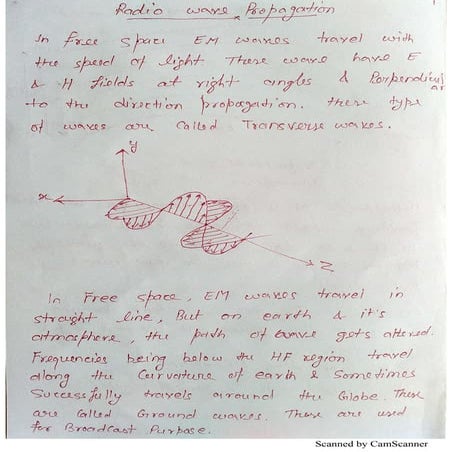 Radio wave Propagation
In free space EM waves travel with
the speed of light These wave have E
& H fields at right angles & Perpendicular
to the direction propagation. these type
of waves are Called Transverse waves.
y
x
Z
In Free space, EM waves travel in
straight line, But on earth & it's
atmosphere, the path of wave gets altered.
Frequencies being below the HF region travel
along the Curvature of earth & Sometimes
Successfully travels around the Globe. These
are Called Ground waves. These are used
for Broadcast Purpose.
Scanned by CamScanner